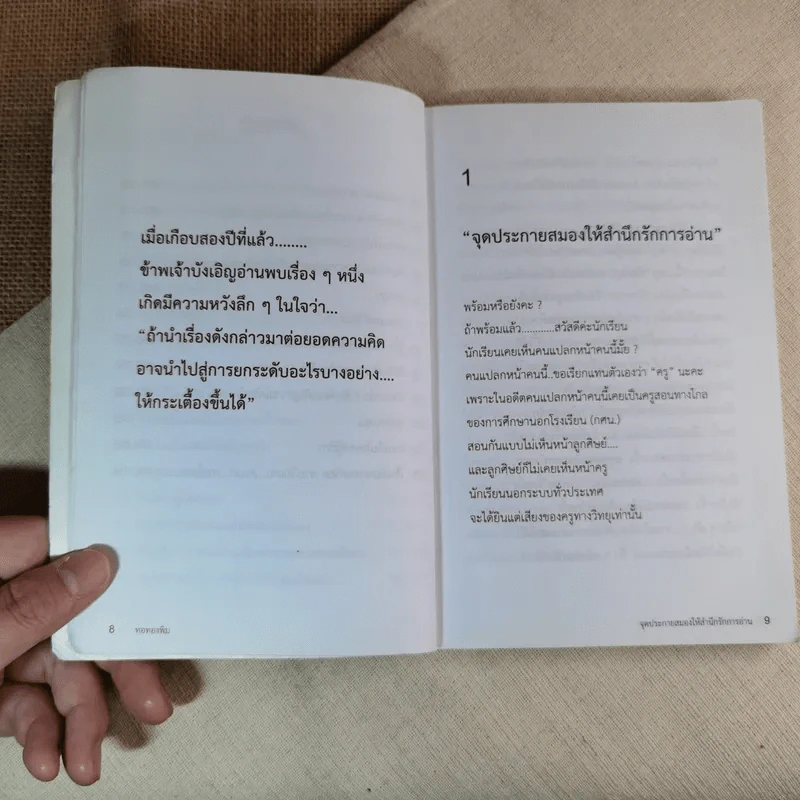 เมื่อเกือบสองปีที่แล้ว........
ข้าพเจ้าบังเอิญอ่านพบเรื่อง ๆ หนึ่ง
เกิดมีความหวังลึก ๆ ในใจว่า...
“ถ้านำเรื่องดังกล่าวมาต่อยอดความคิด
อาจนำไปสู่การยกระดับอะไรบางอย่าง....
ให้กระเตื้องขึ้นได้”
8 ทอทองพิม
1
“จุดประกายสมองให้สำนึกรักการอ่าน”
พร้อมหรือยังคะ ?
ถ้าพร้อมแล้ว............สวัสดีค่ะนักเรียน
นักเรียนเคยเห็นคนแปลกหน้าคนนี้มั้ย ?
คนแปลกหน้าคนนี้..ขอเรียกแทนตัวเองว่า “ครู” นะคะ
เพราะในอดีตคนแปลกหน้าคนนี้เคยเป็นครูสอนทางไกล
ของการศึกษานอกโรงเรียน (กศน.)
สอนกันแบบไม่เห็นหน้าลูกศิษย์....
และลูกศิษย์ก็ไม่เคยเห็นหน้าครู
นักเรียนนอกระบบทั่วประเทศ
จะได้ยินแต่เสียงของครูทางวิทยุเท่านั้น
จุดประกายสมองให้สำนึกรักการอ่าน 9